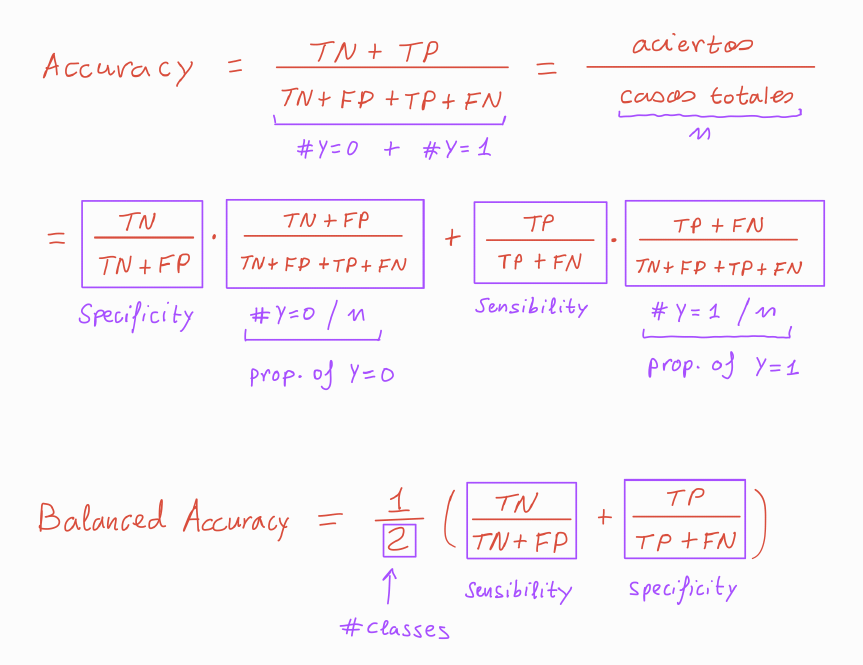 Accuracy = TN + TP / TN + FP + TP + FN = aciertos / casos totales
#Y=0 + #Y=1 n
= TN / TN + FP · TN + FP / TN + FP + TP + FN + TP / TP + FN · TP + FN / TN + FP + TP + FN
Specificity #Y=0 / n Sensibility #Y=1 / n
prop. of Y=0 prop. of Y=1
Balanced Accuracy = 1 / 2 ( TN / TN + FP + TP / TP + FN )
#classes Sensibility Specificity